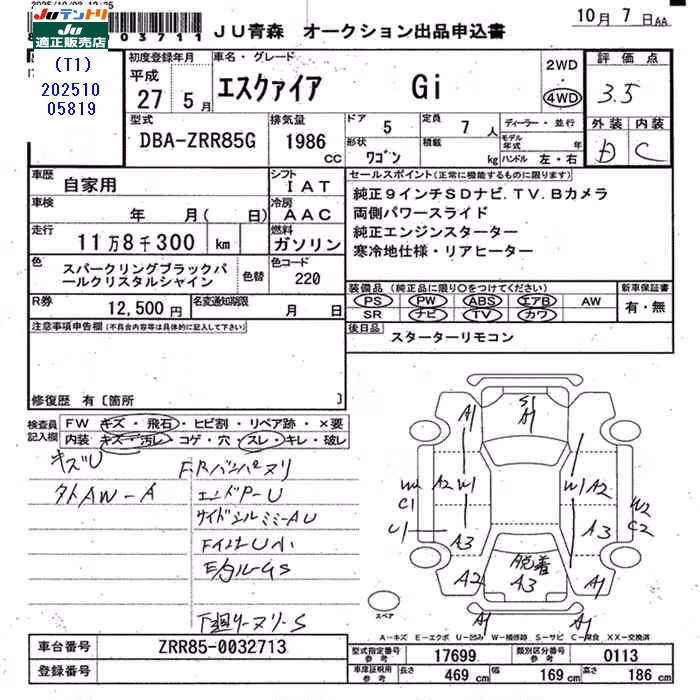 JU テントリ
JU適正販売店
(T1)
202510
05819
JU青森 オークション出品申込書
10月7日AA
初度登録年月
平成
27 5月
車名・グレード
エスクァイア Gi
2WD
4WD
評価点
3.5
型式
DBA-ZRR85G
排気量
1986 cc
ドア
5
定員
7人
ディーラー・並行
モデル年式 年
形状
ワゴン
積載
kg
ハンドル 左・右
外装 内装
D C
車歴
自家用
シフト
IAT
車検
年 月( 日)
冷房
AAC
走行
11万8千300 km
燃料
ガソリン
色
スパークリングブラックパールクリスタルシャイン
色替
色コード
220
R券
12,500円
名変通知期限
月 日
セールスポイント(正常に機能するものに限ります)
純正9インチSDナビ.TV.Bカメラ
両側パワースライド
純正エンジンスターター
寒冷地仕様・リアヒーター
装備品 (純正品に限り○をつけてください)
PS PW ABS エアB AW
SR ナビ TV カワ
新車保証書
有・無
後日品
スターターリモコン
注意事項申告欄(不具合内容等は具体的に記入して下さい)
修復歴 有〔箇所 〕
検査員記入欄
FW キズ・飛石・ヒビ割・リペア跡・×要
内装 キズ・汚レ・コゲ・穴・スレ・キレ・破レ
キズU
タトAW-A
FRバンパヌリ
エンドP-U
サイドシルミミ-AU
下廻リ-ヌリ-S
A1
S1
A1
W2
C1
U1
A2
W1
A3
A2
W1
A2
A3
W2
C2
脱着
A3
A1
A1
A1
スペア
A-キズ E-エクボ U-凹み W-補修跡 S-サビ C-腐食 XX-交換済
車台番号
ZRR85-0032713
登録番号
型式指定番号 参考
17699
類別区分番号 参考
0113
車庫証明用 参考
長さ 469 cm
幅 169 cm
高さ 186 cm